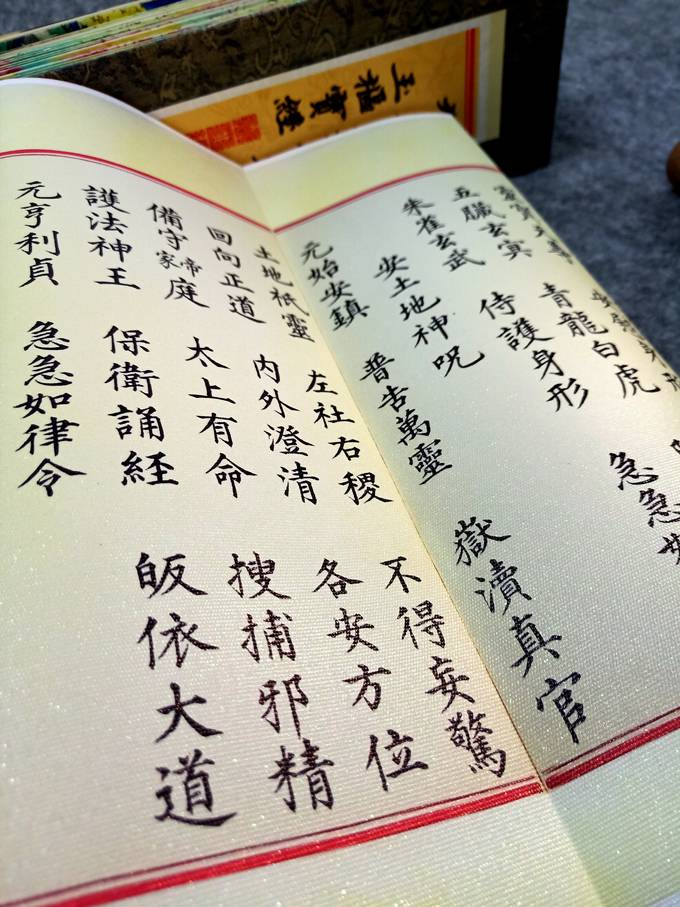 寶經
五臟玄冥 青龍白虎
朱雀玄武 侍護身形 急急如
安土地神呪
元始安鎮 普告萬靈 嶽瀆真官
土地祇靈 左社右稷 不得妄驚
回向正道 內外澄清 各安方位
備守帝家庭 太上有命 搜捕邪精
護法神王 保衛誦經 皈依大道
元亨利貞 急急如律令